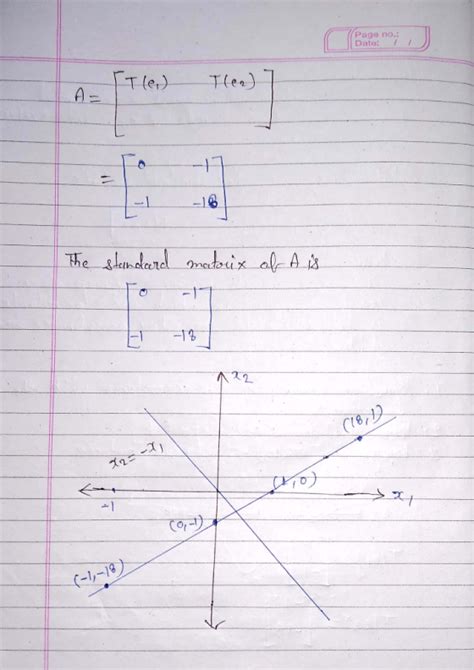 Page no.:
Date: / /
A = [T(e₁) T(e₂)]
= [0 -1
-1 -18]
The standard matrix of A is
[0 -1
-1 -18]
x₂
(18,1)
x₂=-x₁
(1,0)
x₁
-1
(0,-1)
(-1,-18)